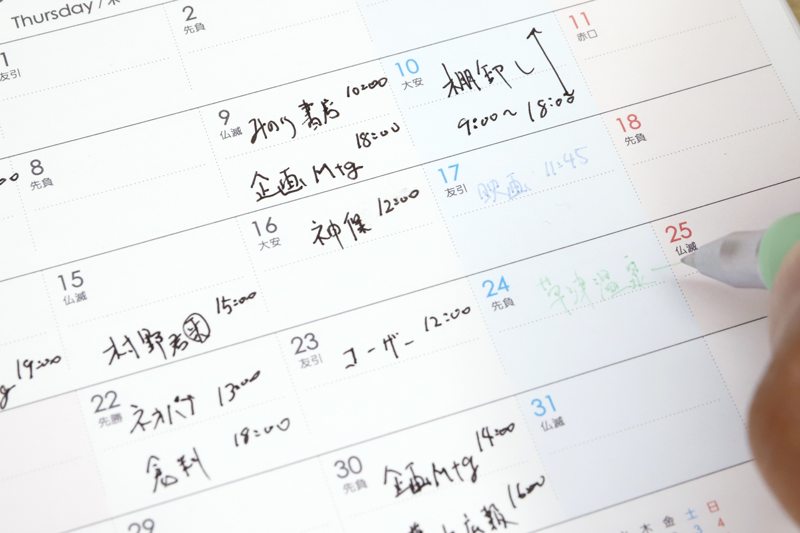 Thursday / 木
1
友引
2
先負
8
先負
9
仏滅
みのり書店 10:00
企画Mtg 18:00
10
大安
棚卸し
9:00〜18:00
11
赤口
15
仏滅
村野君来 15:00
16
大安
神保 12:00
17
友引
映画 11:45
18
先負
19:00
22
先勝
ネオパナ 13:00
倉利 18:00
23
友引
コーザー 12:00
24
先負
草津温泉
25
仏滅
29
30
先負
企画Mtg 14:00
16:00
31
仏滅
木 金 土 日
3 4